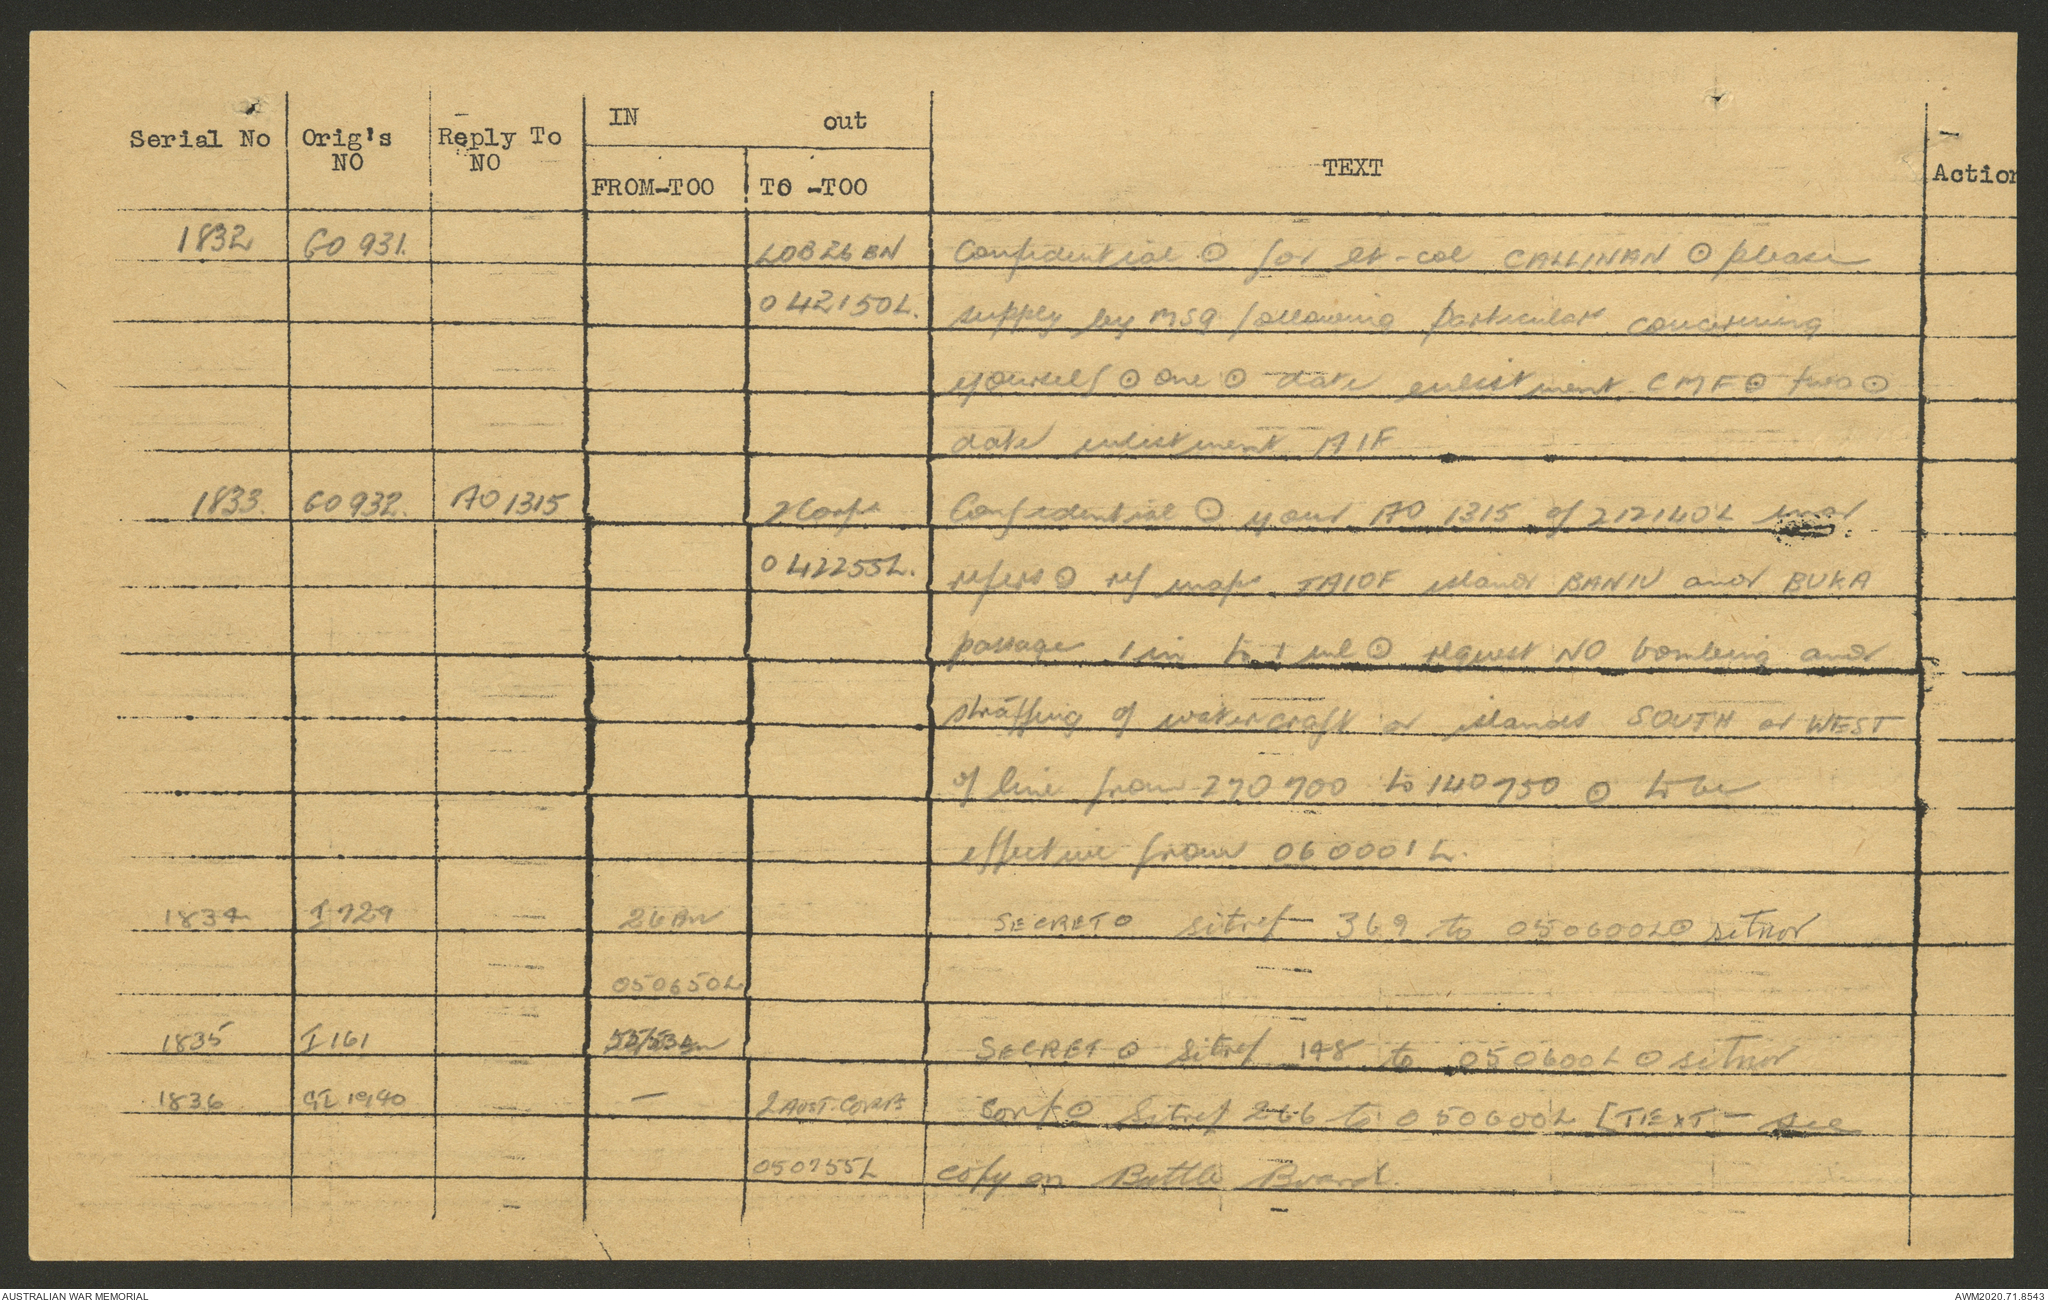 Serial No Orig's NO Reply To NO IN FROM-TOO out TO -TOO TEXT Action
1832 GO 931. LOB 26 BN Confidential ⊙ for Lt-Col CALLINAN ⊙ please
042150L. supply by MSG following particulars concerning
yourself ⊙ one ⊙ date enlistment CMF ⊙ two ⊙
date enlistment AIF
1833. GO 932. AO 1315 2 Corps Confidential ⊙ your AO 1315 of 212140L
042255L. refers ⊙ ref maps TAIOF island BANIU and BUKA
passage 1 in to 1 ml ⊙ request NO bombing and
straffing of watercraft or islands SOUTH or WEST
of line from 270700 to 140750 ⊙ to be
effective from 060001L.
1834 I 729 26 Bn SECRET ⊙ sitrep 369 to 050600L ⊙ sitnor
050650L
1835 I 161 SECRET ⊙ Sitrep 148 to 050600L ⊙ sitnor
1836 GI 1940 — 2 AUST. CORPS Conf ⊙ Sitrep 266 to 050600L [TEXT - see
050755L copy on Battle Board.
AUSTRALIAN WAR MEMORIAL
AWM2020.71.8543